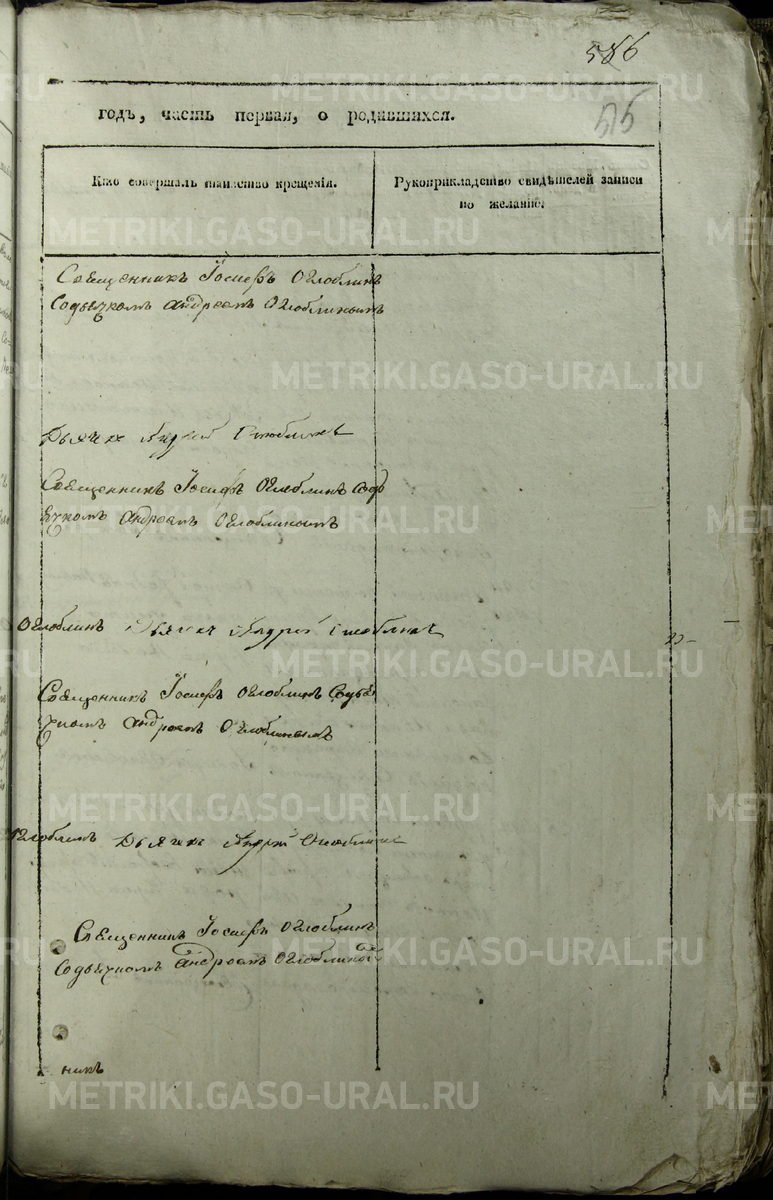 586
515
годъ, часть первая, о родившихся.
Кто совершалъ таинство крещенія.
Рукоприкладство свидѣтелей записи
по желанію.
Священникъ Іосифъ Оглоблинъ
Содьячкомъ Андреемъ Оглоблинымъ
Дьячекъ Андрей Оглоблинъ
Священникъ Іосифъ Оглоблинъ Содь
ячкомъ Андреемъ Оглоблинымъ
Оглоблинъ Дьячекъ Андрей Оглоблинъ
Священникъ Іосифъ Оглоблинъ Содья
чкомъ Андреемъ Оглоблинымъ
Оглоблинъ Дьячекъ Андрей Оглоблинъ
Священникъ Іосифъ Оглоблинъ
Содьячкомъ Андреемъ Оглоблинымъ
никъ
METRIKI.GASO-URAL.RU